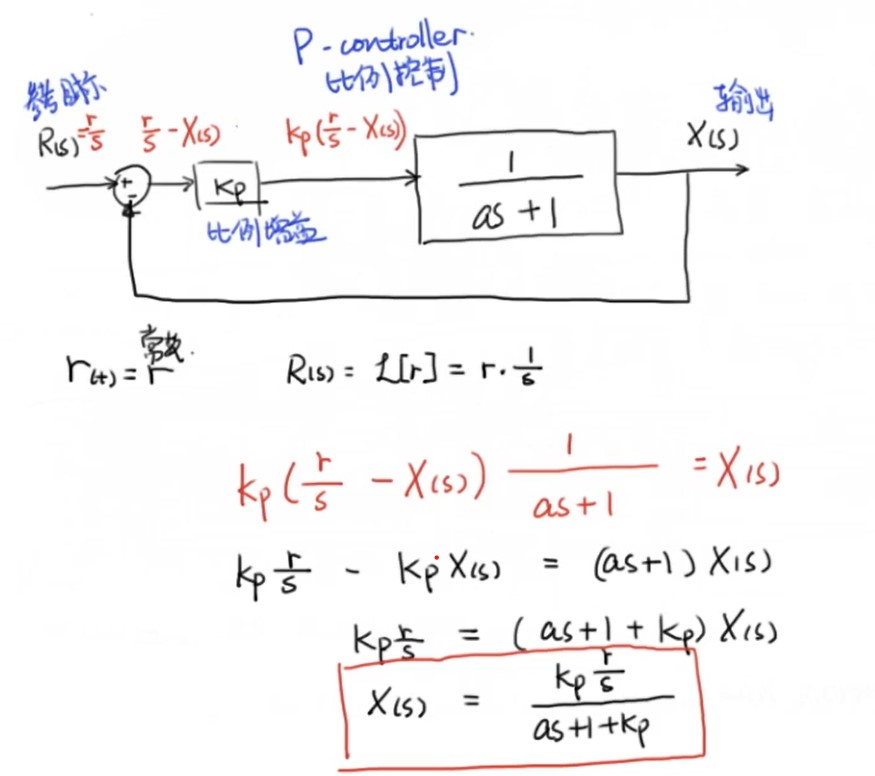 P-controller.
比例控制
参考目标
输出
R(s)=r/s
r/s - X(s)
kp(r/s - X(s))
X(s)
+
-
kp
1/(as+1)
比例增益
常数.
r(t) = r
R(s) = ℒ[r] = r·1/s
kp(r/s - X(s)) 1/(as+1) = X(s)
kp r/s - kp X(s) = (as+1) X(s)
kp r/s = (as+1+kp) X(s)
X(s) = (kp r/s)/(as+1+kp)